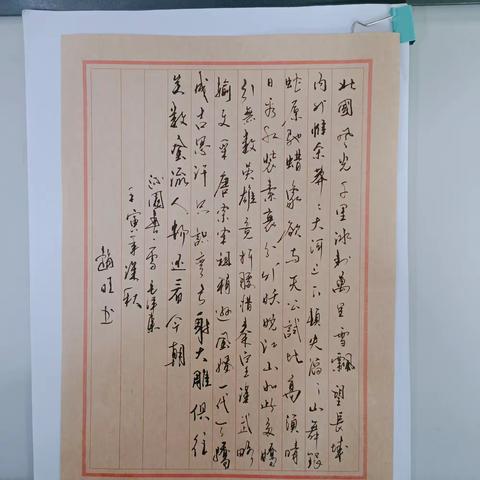 北國風光千里冰封萬里雪飄望長城
内外惟余莽々大河上下頓失滔々山舞銀
蛇原馳蜡象欲与天公試比高須晴
日看红裝素裹分外妖娆江山如此多嬌
引無數英雄竟折腰惜秦皇漢武略
輸文采唐宗宋祖稍遜風騷一代天嬌
成吉思汗只識彎弓射大雕俱往
矣數風流人物还看今朝
沁園春·雪 毛澤東
壬寅年深秋
趙旺书